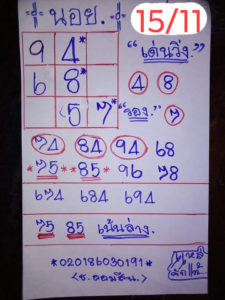 =นอย.= 15/11
9 4*
6 8* "เด่นวิ่ง."
4 8
(5 7* "รอง." 7
74 84 94 68
*75* *85* 96 78
674 684 694
75 85 เน้นล่าง.
*020186030191*
<ธ.ออมสิน.>